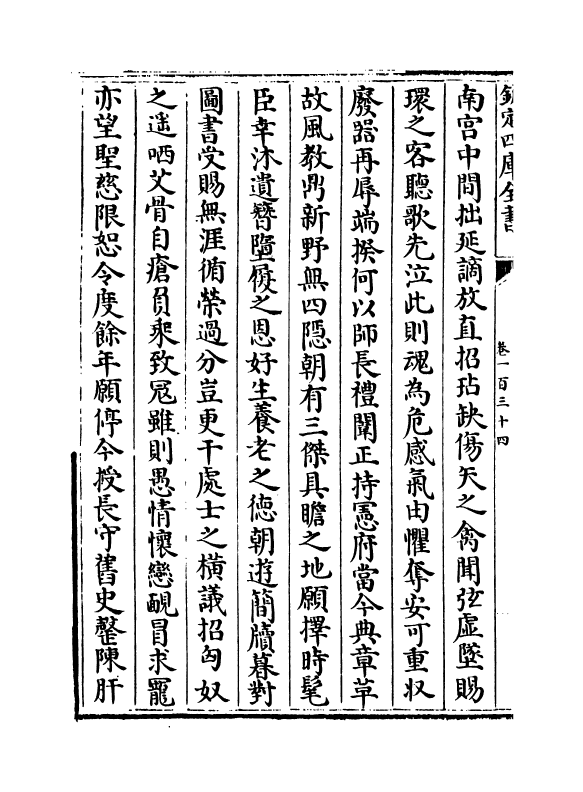 欽定四庫全書
卷一百三十四
南宫中間拙延謫放直招玷缺傷矢之禽聞弦虛墜賜
環之客聽歌先泣此則魂為危感氣由懼奪安可重收
廢器再辱端揆何以師長禮闈正持憲府當今典章草
故風教鼎新野無四隠朝有三傑具瞻之地願擇時髦
臣幸沐遺簮墮屐之恩好生養老之德朝遊簡牘暮對
圖書受賜無涯循榮過分豈更干處士之橫議招匈奴
之遥哂艾骨自瘡負乘致冦雖則愚情懷戀靦冒求寵
亦望聖慈限恕令度餘年願停今授長守舊史罄陳肝